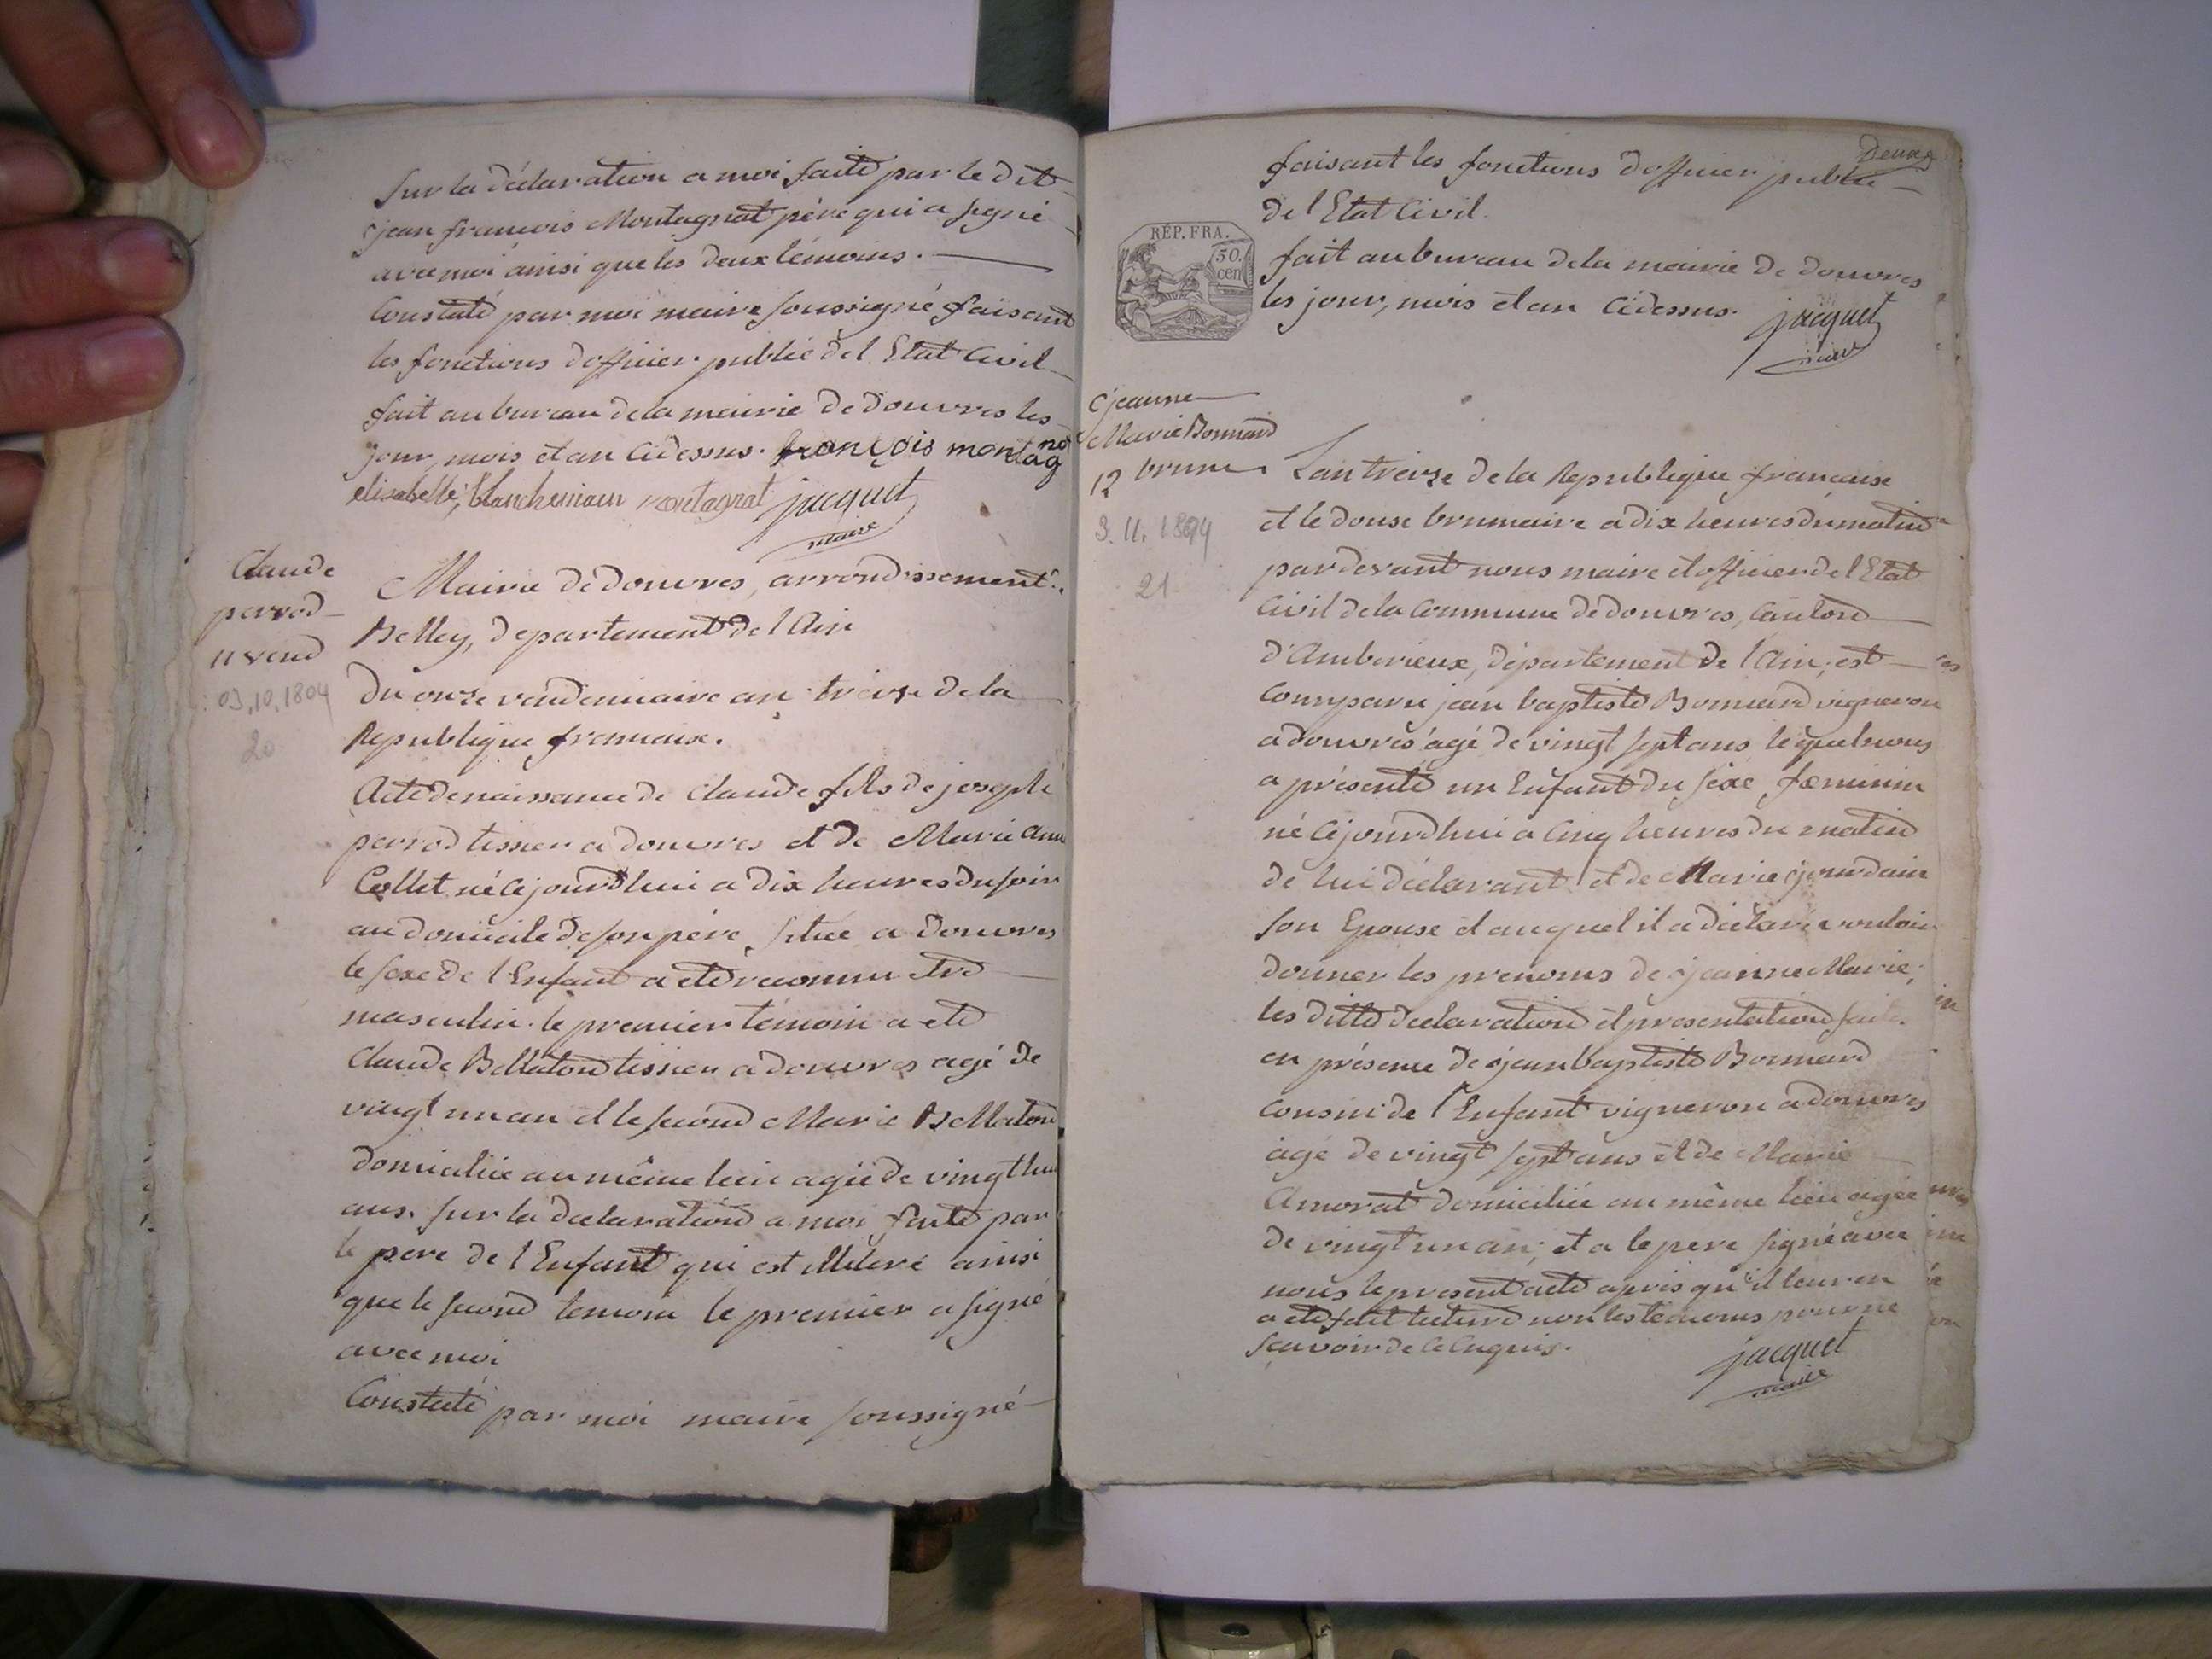 Sur la déclaration a moi faite par le dit
jean françois Montagnat père qui a signé
avec moi ainsi que les deux témoins.
Constaté par moi maire soussigné faisant
les fonctions d'officier public de l'Etat Civil
fait au bureau de la mairie de douvres les
jour, mois et an cidessus. françois montagnat
elisabelle blanchemain montagnat jacquet
maire
Claude
perrod
11 vend
03.10.1804
20
Mairie de douvres, arrondissement
Belley, département de l'Ain
du onze vendemiaire an treize de la
Republique francaise.
Acte de naissance de Claude fils de joseph
perrod tissier a douvres et de Marie Anne
Collet né cejourd'hui a dix heures du soir
au domicile de son père situé a Douvres
le sexe de l'Enfant a eté reconnu etre
masculin. le premier témoin a eté
Claude Bellaton tissier a douvres agé de
vingt un an et le second Marie Bellaton
domiciliée au même lieu agée de vingt huit
ans. sur la declaration a moi faite par
le père de l'Enfant qui est illiteré ainsi
que le second temoin le premier a signé
avec moi
Constaté par moi maire soussigné
deux
faisant les fonctions d'officier public
de l'Etat Civil.
REP. FRA.
50.
cen
fait au bureau de la mairie de douvres
les jour, mois et an cidessus. jacquet
maire
jeanne
Marie Bonnard
12 brum
3.11.1804
21
L'an treize de la Republique francaise
et le douse brumaire a dix heures du matin
pardevant nous maire et officier de l'Etat
Civil de la Commune de douvres, canton
d'Amberieux, département de l'Ain, est
comparu jean baptiste Bonnard vigneron
a douvres agé de vingt sept ans lequel nous
a présenté un Enfant du sexe fœminin
né cejourdhui a cinq heures du matin
de lui déclarant et de Marie jourdain
son Epouse et auquel il a déclaré vouloir
donner les prenoms de jeanne Marie;
les ditte declaration et presentation faite
en présence de jean baptiste Bonnard
cousin de l'Enfant vigneron a douvres
agé de vingt sept ans et de Marie
Amorat domiciliée au même lieu agée
de vingt un an; et a le pere signé avec
nous le present acte apres qu'il leur en
a eté fait lecture non les temoins pour ne
scavoir de ce enquis.
jacquet
maire